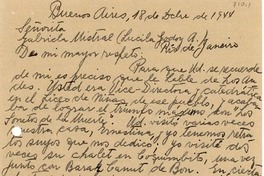 Buenos Aires, 18 de Dcbre de 1944
Señorita
Gabriela Mistral (Lucila Godoy A.)
Rio de Janeiro
De mi mayor respeto.
Para que Ud. se recuerde
de mi es preciso que le hable de los An-
des. Usted era Vice-Directora, y catedrática
en el Liceo de Niñas de ese pueblo, y acaba-
ba de lograr el triunfo máximo con los
Sonetos de la Muerte. Ud. visitó varias veces
nuestra casa, Maestrina, y yo tenemos retra-
tos suyos que nos dedicó. Yo visité dos
veces su chalet en Coquimbito, una vez
junto con